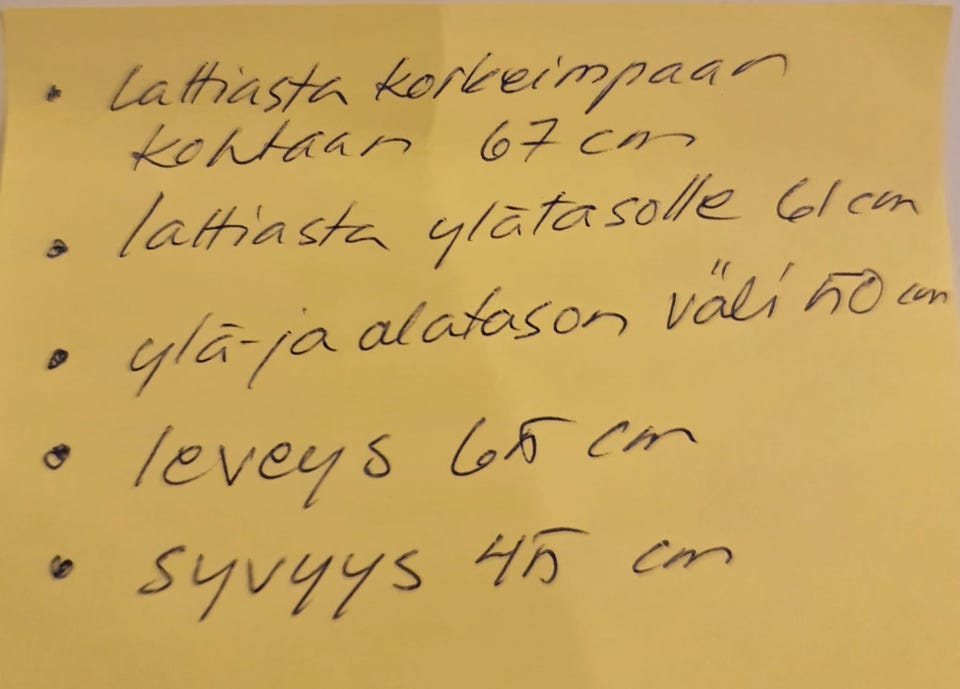 • lattiasta korkeimpaan
kohtaan 67 cm
• lattiasta ylätasolle 61 cm
• ylä-ja alatason väli 50 cm
• leveys 65 cm
• syvyys 45 cm